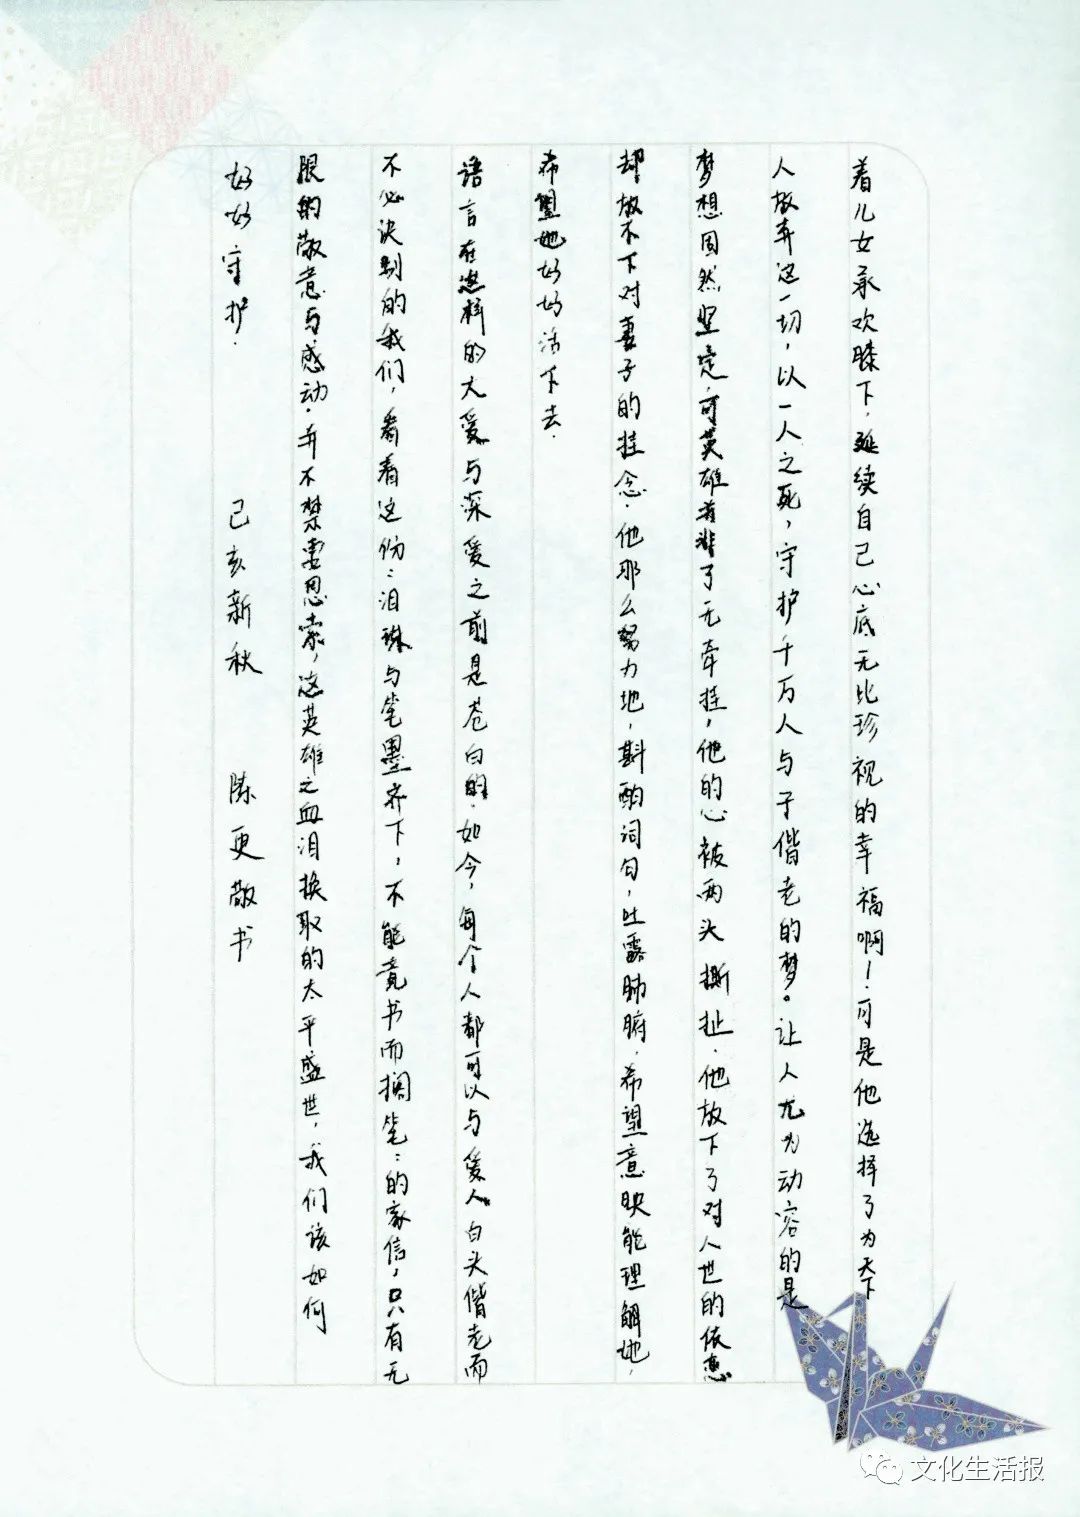 着儿女承欢膝下，延续自己心底无比珍视的幸福啊！可是他选择了为天下
人放弃这一切，以一人之死，守护千万人与子偕老的梦。让人尤为动容的是
梦想固然坚定，可英雄若非了无牵挂，他的心被两头撕扯．他放下了对人世的依恋
却放不下对妻子的挂念．他那么努力地，斟酌词句，吐露肺腑，希望意映能理解他，
希望她好好活下去．
语言在这样的大爱与深爱之前是苍白的．如今，每个人都可以与爱人白头偕老而
不必诀别的我们，看着这份：泪珠与笔墨齐下，不能竟书而搁笔：的家信，只有无
限的敬意与感动．并不禁要思索，这英雄之血泪换取的太平盛世，我们该如何
好好守护．
己亥新秋 陈更敬书
文化生活报